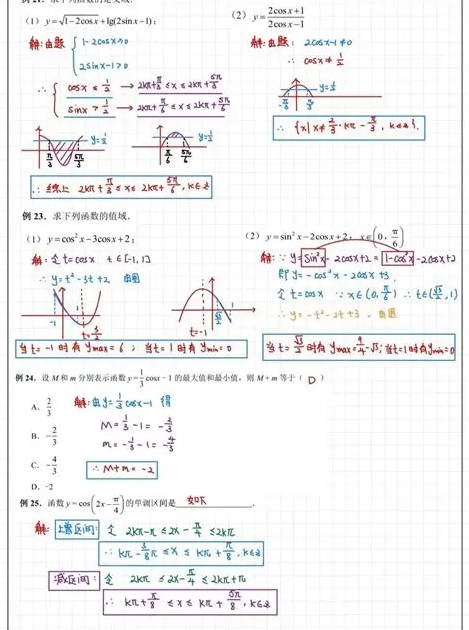 (1) y=√(1-2cosx)+lg(2sinx-1);
(2) y=(2cosx+1)/(2cosx-1)
解:由题 { 1-2cosx≥0
2sinx-1>0
∴ { cosx≤1/2 → 2kπ+π/3≤x≤2kπ+5π/3
sinx>1/2 → 2kπ+π/6≤x≤2kπ+5π/6
解:由题: 2cosx-1≠0
∴ cosx≠1/2
y=1/2
π/3 5π/3
y=1/2
π/6 5π/6
∴综上 2kπ+π/3≤x≤2kπ+5π/6, k∈Z
例 23. 求下列函数的值域.
(1) y=cos²x-3cosx+2;
解:令t=cosx t∈[-1,1]
∴y=t²-3t+2 由图
-1 1
t=3/2
当t=-1时有ymax=6; 当t=1时有ymin=0
(2) y=sin²x-2cosx+2, x∈(0, π/6)
解:∵y=sin²x-2cosx+2=1-cos²x-2cosx+2
即y=-cos²x-2cosx+3
令t=cosx ∵x∈(0,π/6) ∴t∈(√3/2,1)
∴y=-t²-2t+3, 由图
t=-1
√3/2 1
当t=√3/2时有ymax=9/4-√3;当t=1时有ymin=0
例 24. 设 M 和 m 分别表示函数 y=1/3cosx-1 的最大值和最小值，则 M+m 等于( D )
A. 2/3
B. -2/3
C. -4/3
D. -2
解:由y=1/3cosx-1 得
M=1/3-1=-2/3
m=-1/3-1=-4/3
∴M+m=-2
例 25. 函数 y=cos(2x-π/4) 的单调区间是 如下 .
解: 上增区间: 令 2kπ-π≤2x-π/4≤2kπ
∴kπ-3/8π≤x≤kπ+π/8, k∈Z
减区间: 令 2kπ≤2x-π/4≤2kπ+π
∴kπ+π/8≤x≤kπ+5π/8, k∈Z